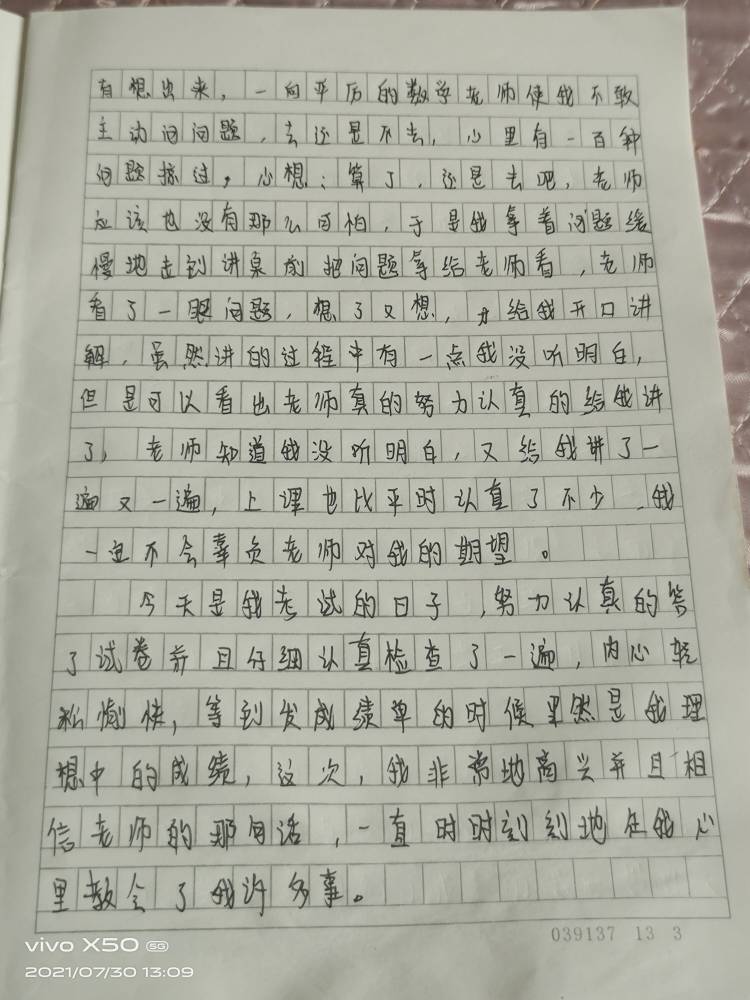 有想出来，一向平厉的数学老师使我不敢
主动问问题，去还是不去，心里有一百种
问题掠过，心想：算了，还是去吧，老师
应该也没有那么可怕，于是我拿着问题缓
慢地走到讲桌前把问题拿给老师看，老师
看了一眼问题，想了又想，才给我开口讲
解，虽然讲的过程中有一点我没听明白，
但是可以看出老师真的努力认真的给我讲
了，老师知道我没听明白，又给我讲了一
遍又一遍，上课也比平时认真了不少，我
一定不会辜负老师对我的期望。
今天是我考试的日子，努力认真的答
了试卷并且仔细认真检查了一遍，内心轻
松愉快，等到发成绩单的时候果然是我理
想中的成绩，这次，我非常地高兴并且相
信老师的那句话，一直时时刻刻地在我心
里教会了我许多事。
039137 13 3
vivo X50 5G
2021/07/30 13:09